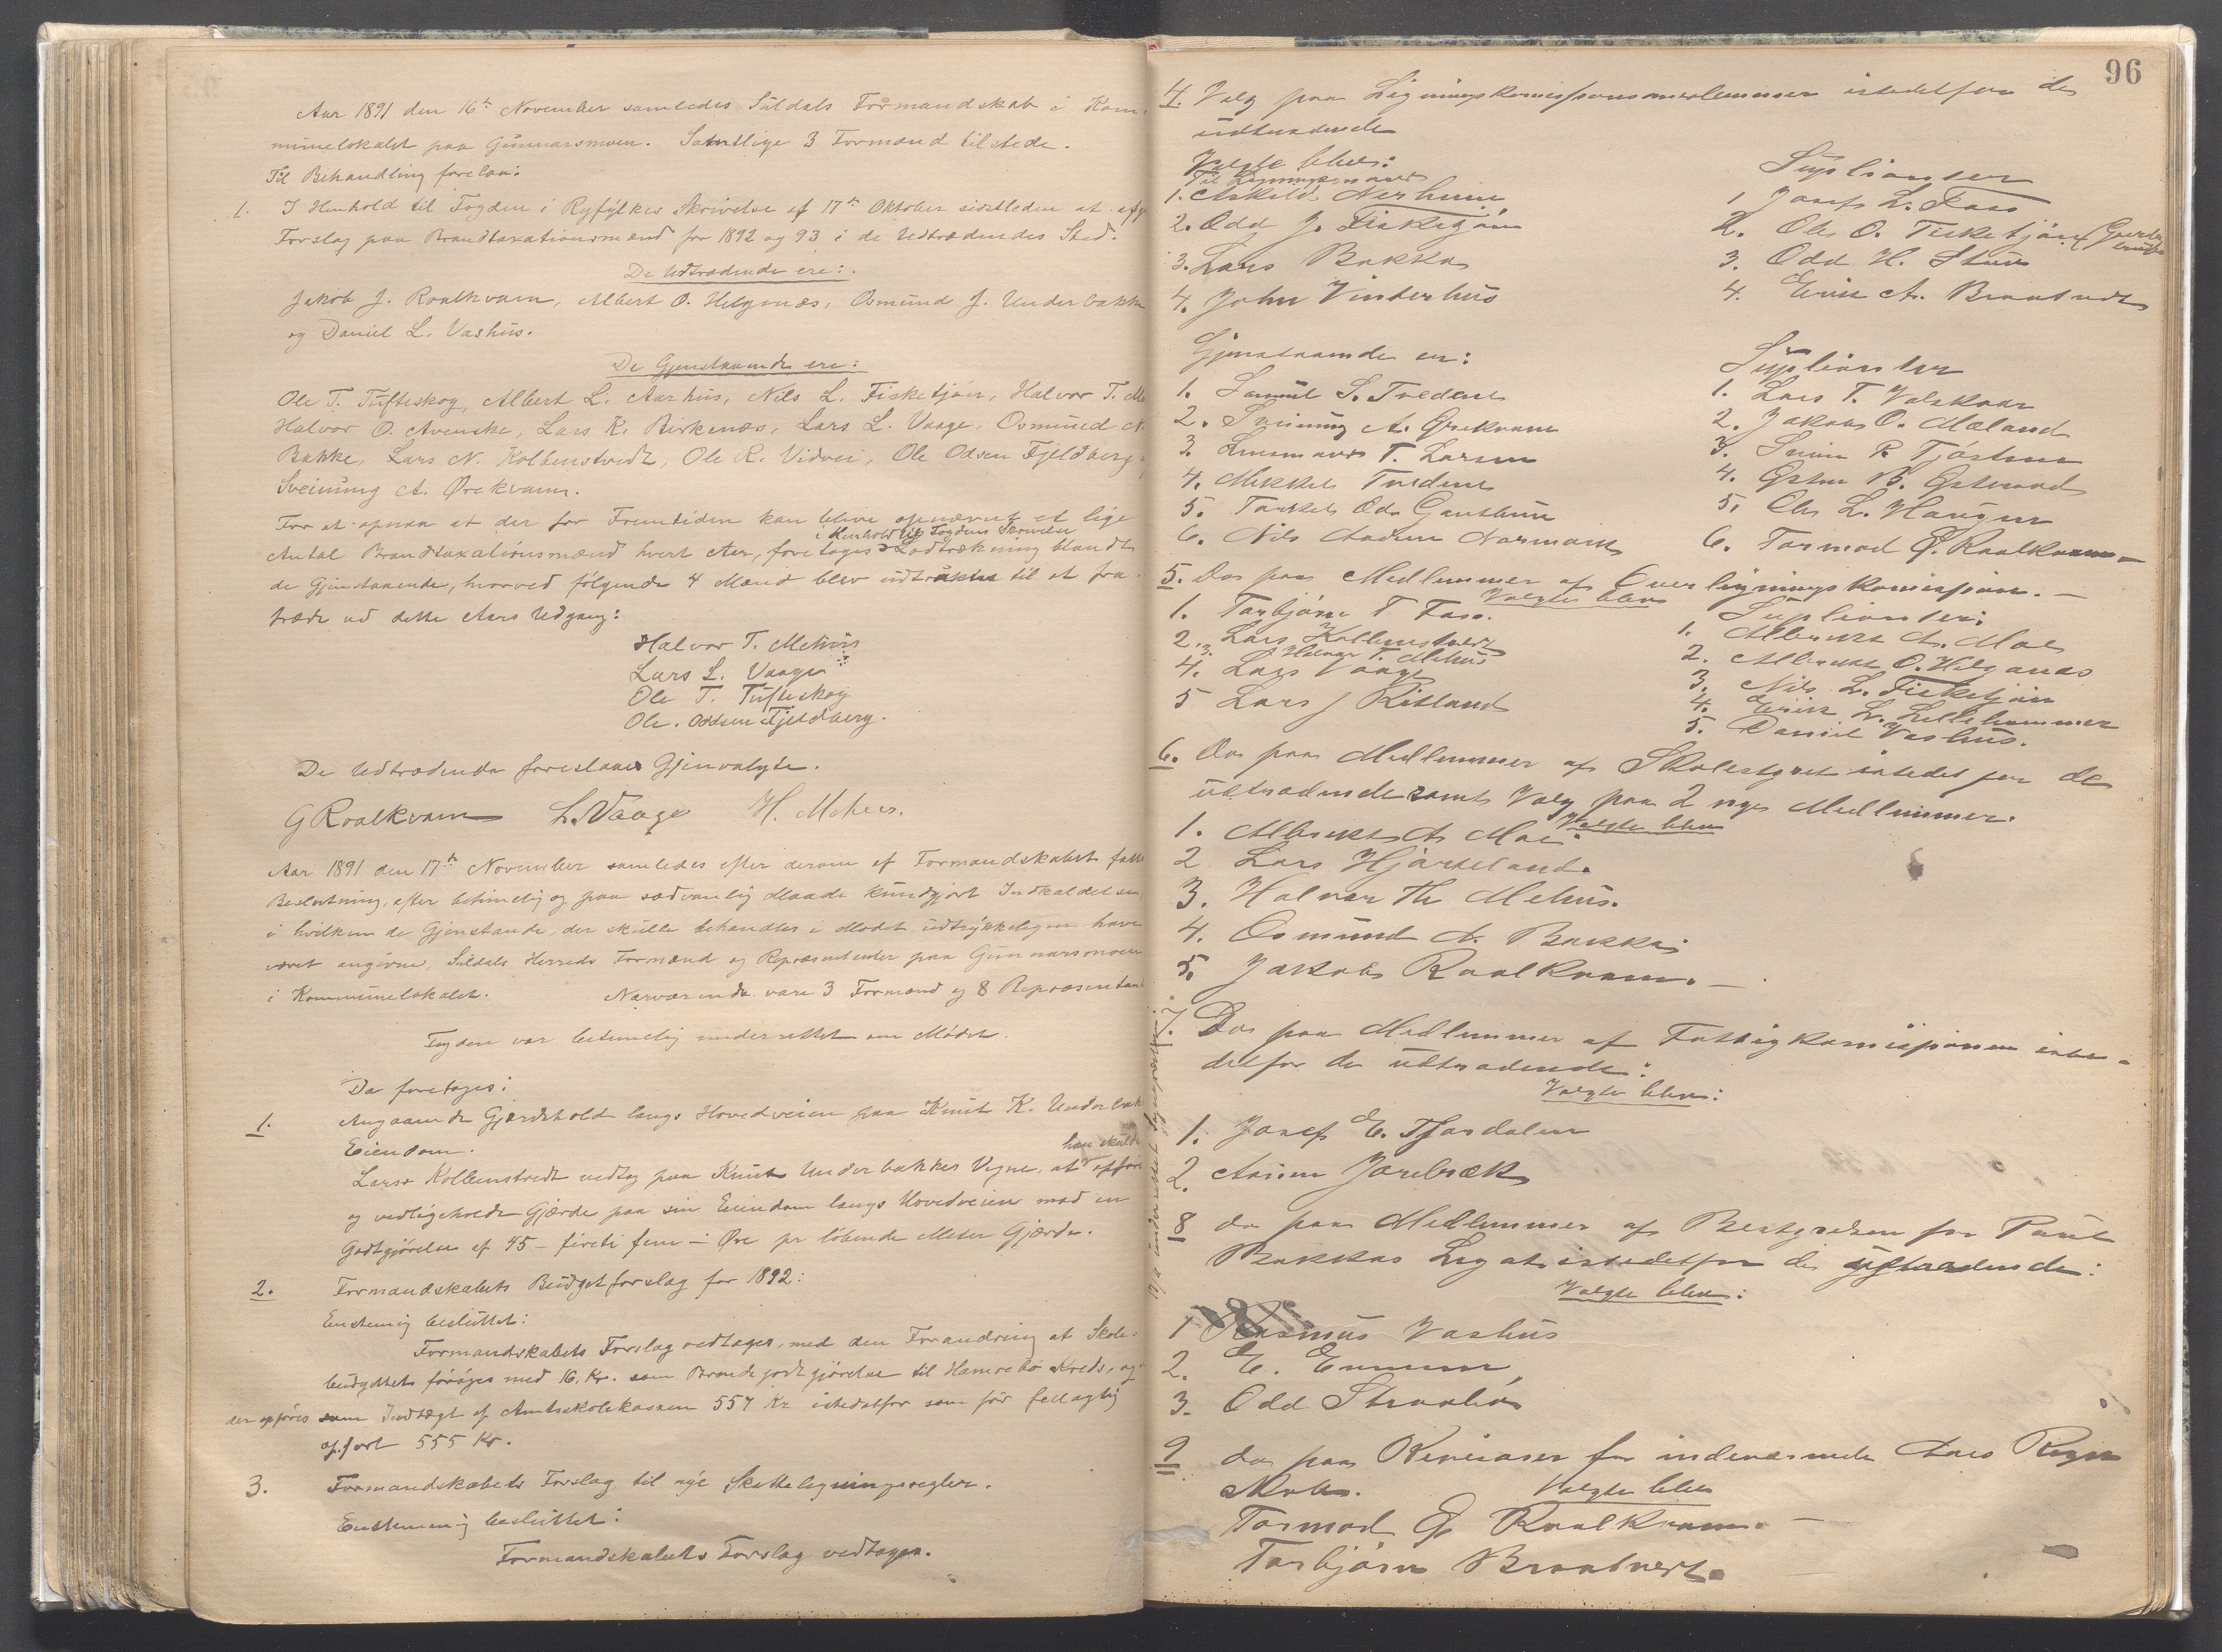 Aar 1891 den 16de November samledes Suldals Formandskab i Kom-
munelokalet paa Gunnarsmoen. Samtlige 3 Formænd tilstede.
Til Behandling forelaa:
1. I Henhold til Fogden i Ryfylkes Skrivelse af 17de Oktober sidstleden at afgi
Forslag paa Brandtaxationsmænd for 1892 og 93 i de Udtrædendes Sted.
De Udtrædende ere:
Jakob J. Roalkvam, Albert O. Helgenæs, Osmund J. Underbakke
og Daniel L. Vashus.
De Gjenstaaende ere:
Ole T. Tufteskog, Albert L. Aarhus, Nils L. Fisketjøn, Halvor T. Me
Halvor O. Avenske, Lars K. Birkenæs, Lars L. Vaage, Osmund N.
Bakke, Lars N. Kolbenstvedt, Ole R. Vidvei, Ole Odsen Fjeldberg
Sveinung A. Ørekvam.
For at opnaa at der for Fremtiden kan blive opnævnt et lige
i Henhold til Fogdens Skrivelse
Antal Brandtaxationsmænd hvert Aar, foretoges Lodtrækning blandt
de Gjenstaaende, hvorved følgende 4 Mænd blev udtrukne til at fra-
træde ved dette Aars Udgang:
Halvor T. Mehus
Lars L. Vaage
Ole T. Tufteskog
Ole. Oddsen Fjeldberg.
De Udtrædende foreslaaes Gjenvalgte.
G Roalkvam L. Vaage H. Mehus.
Aar 1891 den 17de November samledes efter derom af Formandskabet fatte
Beslutning, efter betimelig og paa sædvanlig Maade kundgjort Indkaldelse,
i hvilken de Gjenstande, der skulle behandles i Mødet, udtrykkeligen have
været angivne, Suldals Herreds Formænd og Repræsentanter paa Gunnarsmoen
i Kommunelokalet. Nærværende vare 3 Formænd og 8 Repræsentant
Fogden var betimelig underrettet om Mødet.
Da foretoges:
1. Angaaende Gjærdehold langs Hovedveien paa Knut K. Underbak
Eiendom.
han skulde
Lars Kolbenstvedt vedtog paa Knut Underbakkes Vegne, at opføre
og vedligeholde Gjærde paa sin Eiendom langs Hovedveien mod en
Godtgjørelse af 45 - firti fem - Øre pr løbende Meter Gjærde.
2. Formandskabets Budgetforslag for 1892:
Enstemig besluttet:
Formandskabets Forslag vedtages, med den Forandring at Skole-
budgettet forøges med 16. Kr. som Brændegodtgjørelse til Hamrebø Kreds, og
der opføres som Indtægt af Amtsskolekassen 557 Kr istedetfor som før feilagtig
opført 555 Kr.
3. Formandskabets Forslag til nye Skatteligningsregler.
Enstemmig besluttet:
Formandskabets Forslag vedtages.
96
4. Valg paa Ligningskomissionsmedlemmer istedetfor de
udtrædende
Valgte blev:
Til Ligningsmænd
Suplianter
1. Askild Nerhuus
1 Josef L. Foss
2. Odd J. Fisketjøn
2. Ole O. Fisketjøn
3. Lars Bakka
3. Odd H. Stuvs
4. John Vinterhus
4. Erik A. Braatvedt
Gjenstaaende er:
Suplianter
1. Samuel S. Tvedene
1. Lars T. Valskaar
2. Sveinung A. Ørekvam
2. Jakob O. Mæland
3. T. Larsen
3. R. Tjøstum
4. Mikkel Tvedene
4. Østen B. Østraad
5. Torkel Ods Guathun
5. Ole L. Haugen
6. Nils Aadsen Nærmark
6. Tormod G. Roalkvam
5. Do paa Medlemmer af Overligningskomissjon.
Valgte blev
Suplianter:
1. Torbjørn T Foss.
1. Albrekt A. Moe
2. Lars Kolbenstvedt
2. Albrekt O. Helganæs
3. Halvor T. Mehus
3. Nils L. Fisketjøn
4. Lars Vaage
4. Erik L. Lillehammer
5 Lars J Ritland
5. Daniel Vashus.
6. Do paa Medlemmer af Skolestyret istedet for de
udtrædende samt Valg paa 2 nye Medlemmer.
Valgte blev
1. Albrekt A Moe
2 Lars Hjorteland.
3. Halvor Th Mehus.
4. Osmund N. Bakka
5. Jakob Roalkvam.
7. Do paa Medlemmer af Fattigkomissjonen iste-
detfor de udtrædende:
Valgte blev:
1. Josef E. Tjordalen
2. Jonebræk
8 do paa Medlemmer af Bestyrelsen for Poul
Bakkas Legat istedetfor de udtrædende:
Valgte blev:
1 Rasmus Vashus
2. E. Ennem
3. Odd Straabø
9 do paa Revisorer for indeværende Aars Regn
skaber. Valgte blev
Tormod G Roalkvam.
Torbjørn Braatvedt.